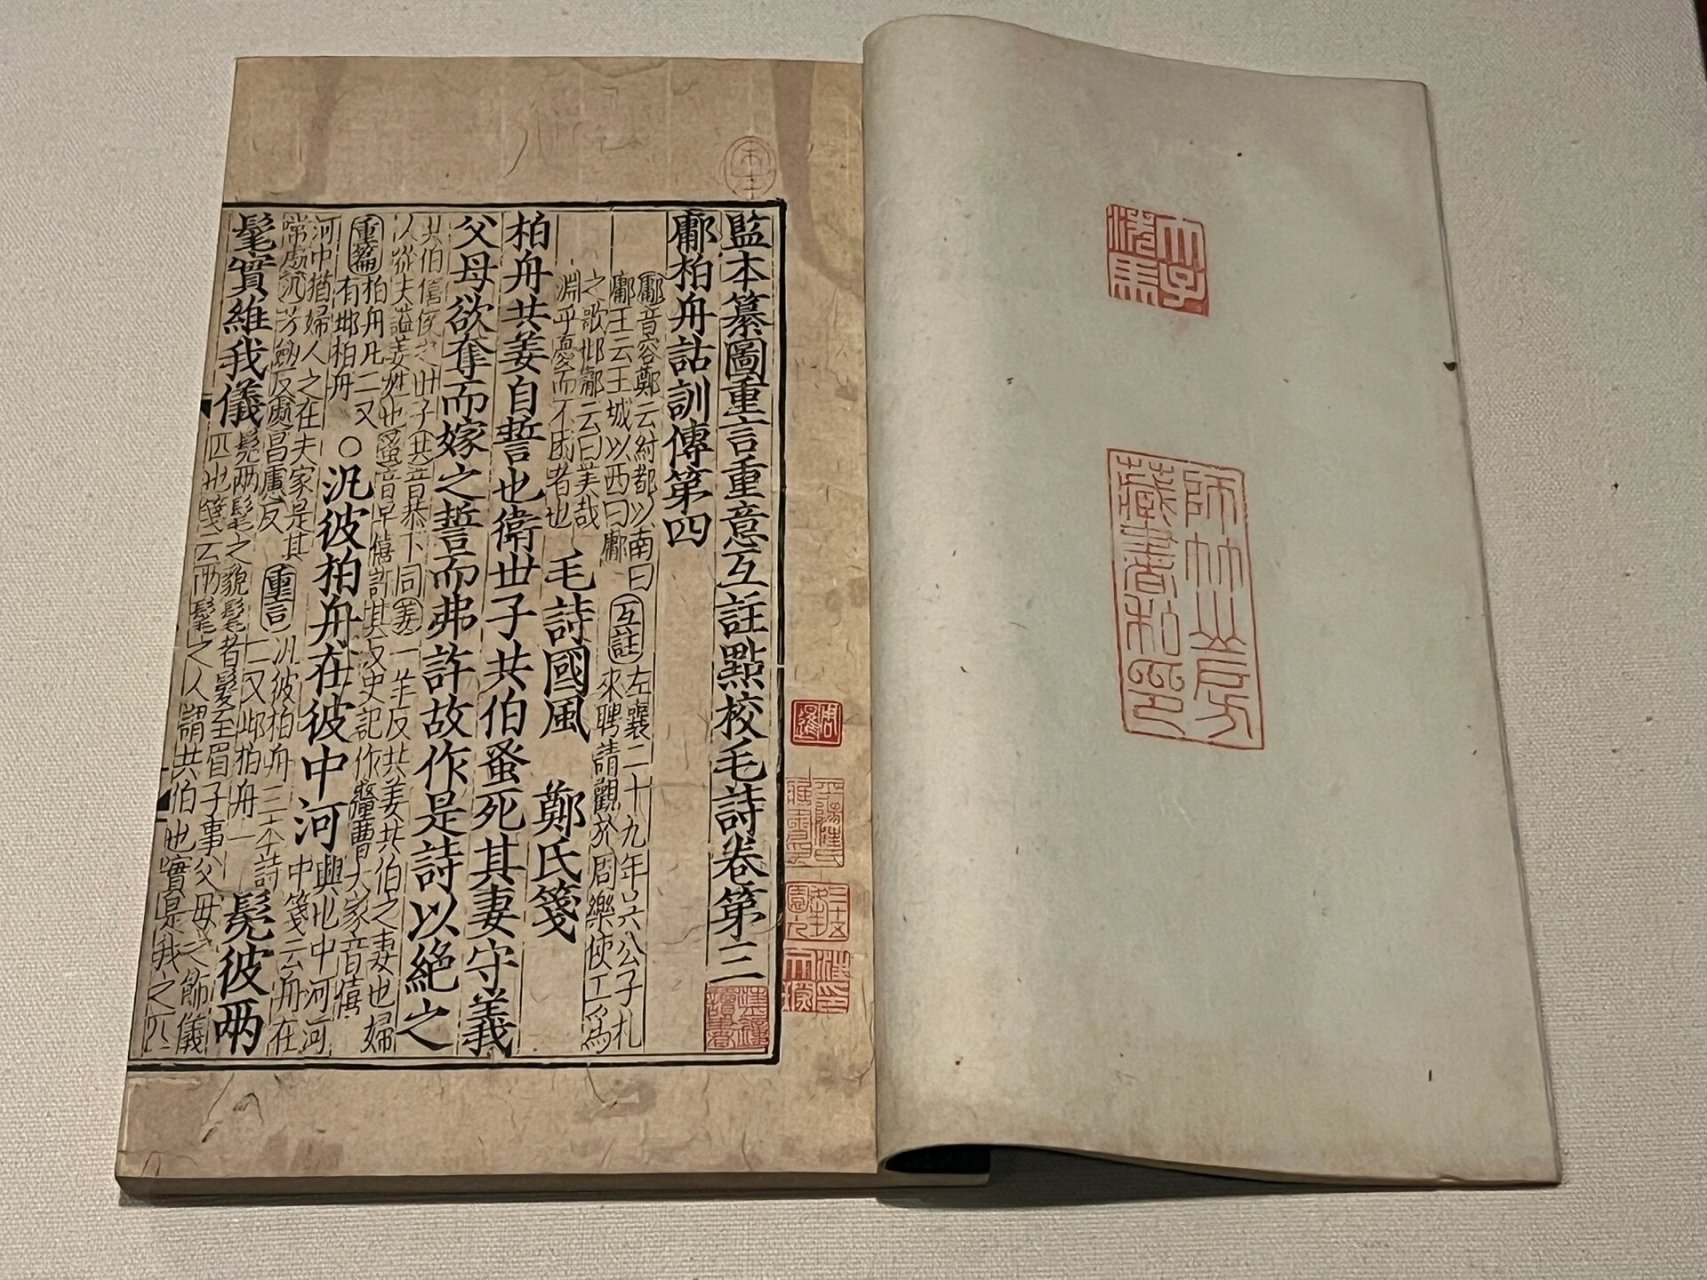 監本纂圖重言重意互註點校毛詩卷第三
鄘柏舟詁訓傳第四
鄘音容鄭云紂都以南曰
鄘王云王城以西曰鄘
互註
左襄二十九年吳公子札
來聘請觀於周樂使工為
之歌邶鄘云曰美哉
淵乎憂而不困者也
毛詩國風 鄭氏箋
柏舟共姜自誓也衛世子共伯蚤死其妻守義
父母欲奪而嫁之誓而弗許故作是詩以絕之
共伯僖侯之世子共音恭下同姜一羊反共姜共伯之妻也婦
人從夫謚姜姓也蚤音早僖許其反史記作釐曹大家音僖
重篇
柏舟凡二又
有邶柏舟
○汎彼柏舟在彼中河
興也中河河
中箋云舟在
河中猶婦人之在夫家是其
常處汎芳劒反處昌慮反
重言
汎彼柏舟二本詩
一又邶柏舟一
髧彼兩
髦實維我儀
髧兩髦之貌髦者髮至眉子事父母之飾儀
匹也箋云兩髦之人謂共伯也實是我之匹
師竹山房
藏書私印